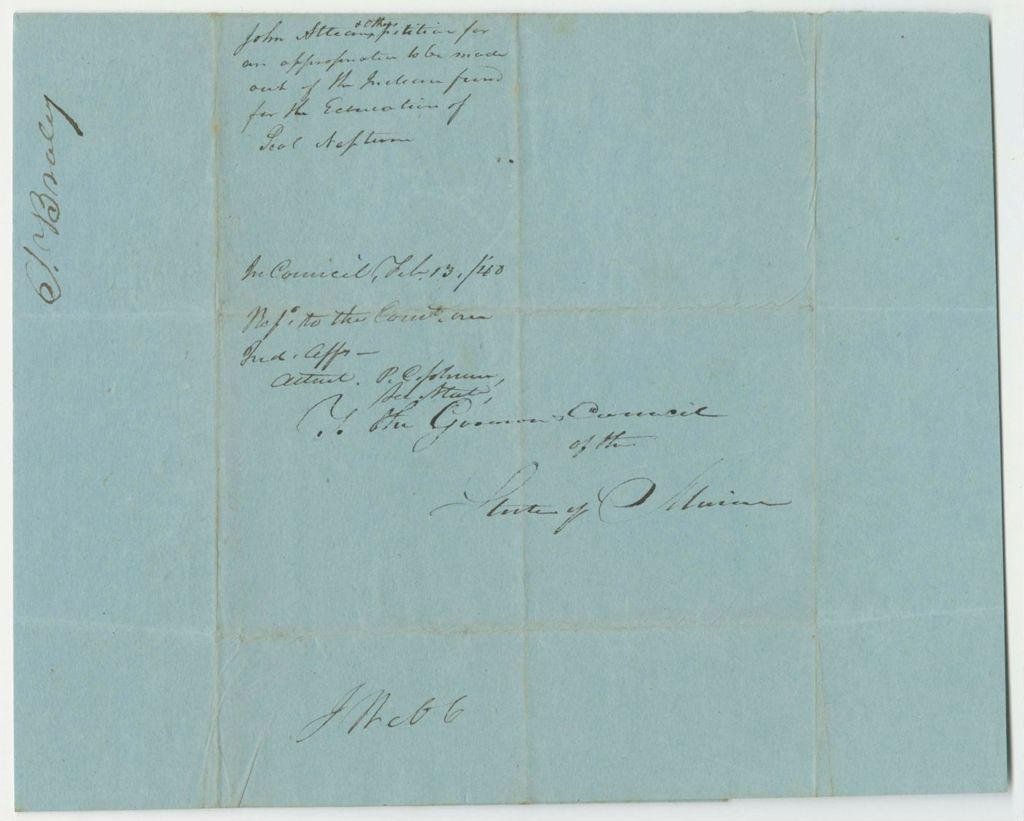 John Attean & others petition for
an appropriation to be made
out of the Indian fund
for the Education of
Peol Neptune
In Council, Feb. 13, 1840
Refd. to the Comt. on
Ind. Affs —
Attest. P. C. Johnson,
Sec. State,
To The Governor & Council
of the
State of Maine
J Webb
S. Braley